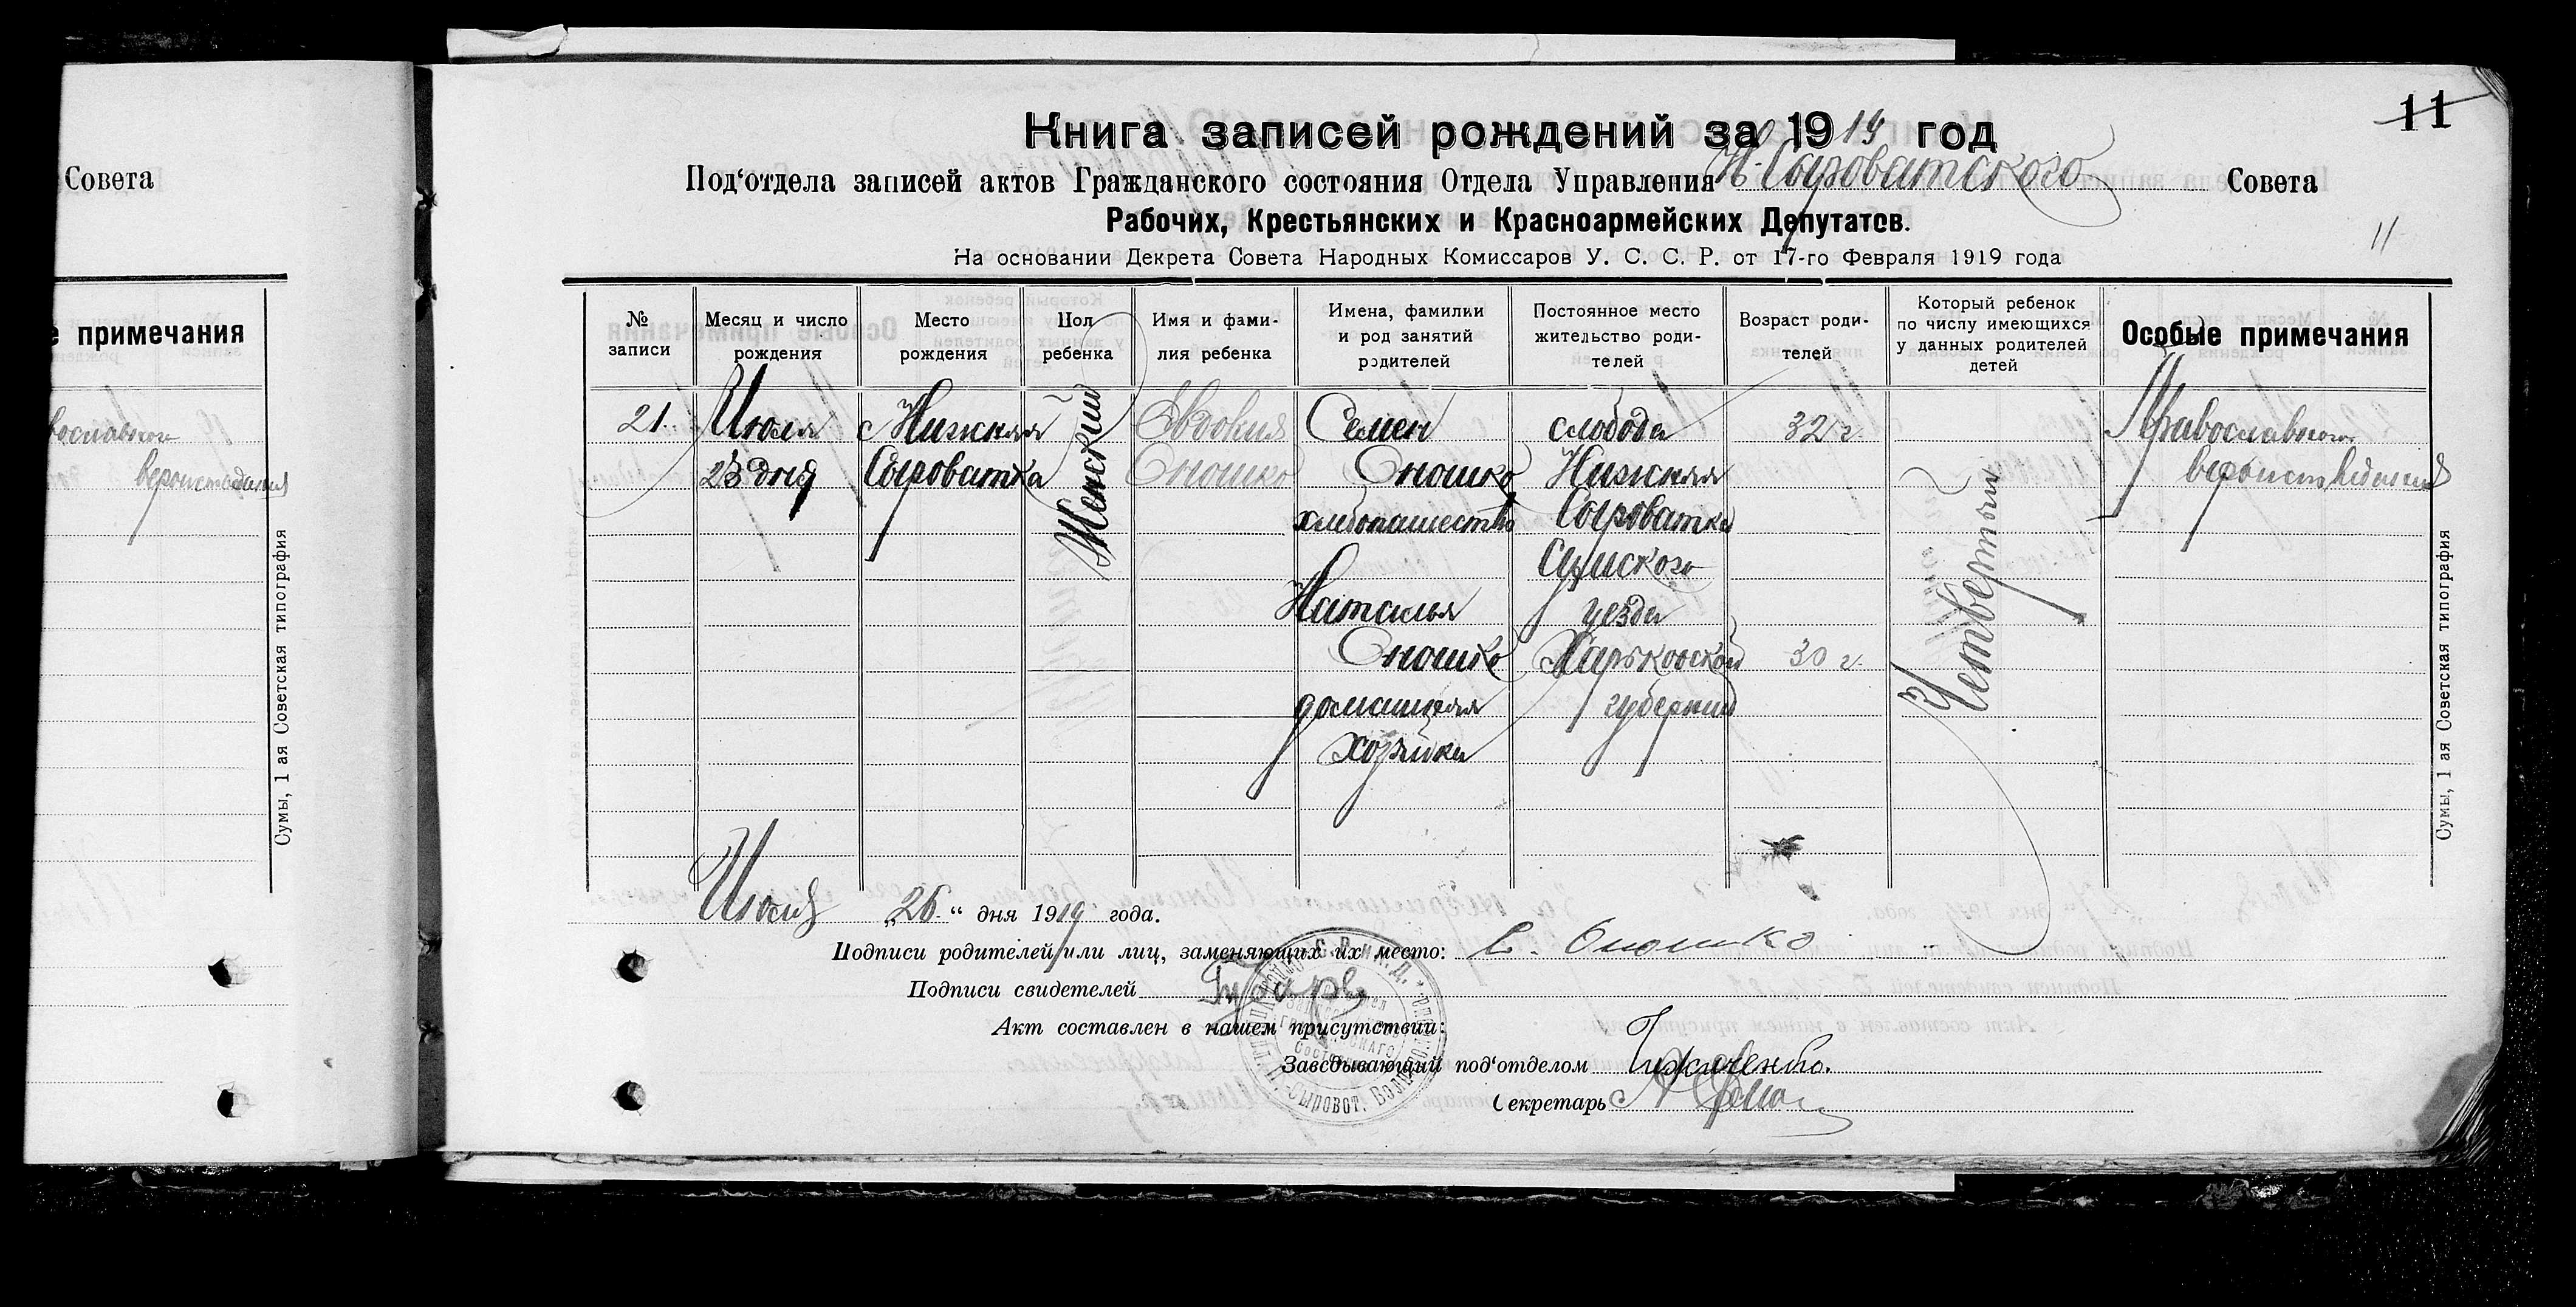 Совета
е примечания
вославного
вероисповедания
Сумы, 1 ая Советская типография
11
Книга записей рождений за 1919 год
Под‘отдела записей актов Гражданского состояния Отдела Управления Н. Сыроватского Совета
Рабочих, Крестьянских и Красноармейских Депутатов.
11
На основании Декрета Совета Народных Комиссаров У. С. С. Р. от 17-го Февраля 1919 года
№ записи
Месяц и число рождения
Место рождения
Пол ребенка
Имя и фами-
лия ребенка
Имена, фамилии
и род занятий
родителей
Постоянное место
жительство роди-
телей
Возраст роди-
телей
Который ребенок
по числу имеющихся
у данных родителей
детей
Особые примечания
21.
Июля
23 дня
с Нижняя
Сыроватка
Женский
Евдокия
Оношко
Семен
Оношко
хлебопашество
Наталья
Оношко
домашняя
хозяйка
слобода
Нижняя
Сыроватка
Сумского
уезда
Харьковской
губернии
32 г.
30 г.
Четвертый
Православного
вероисповедания
Сумы, 1 ая Советская типография
Июля „26“ дня 1919 года.
Подписи родителей или лиц, заменяющих их место: С. Оношко
Подписи свидетелей
Акт составлен в нашем присутствии:
Заведывающий под‘отделом
Секретарь